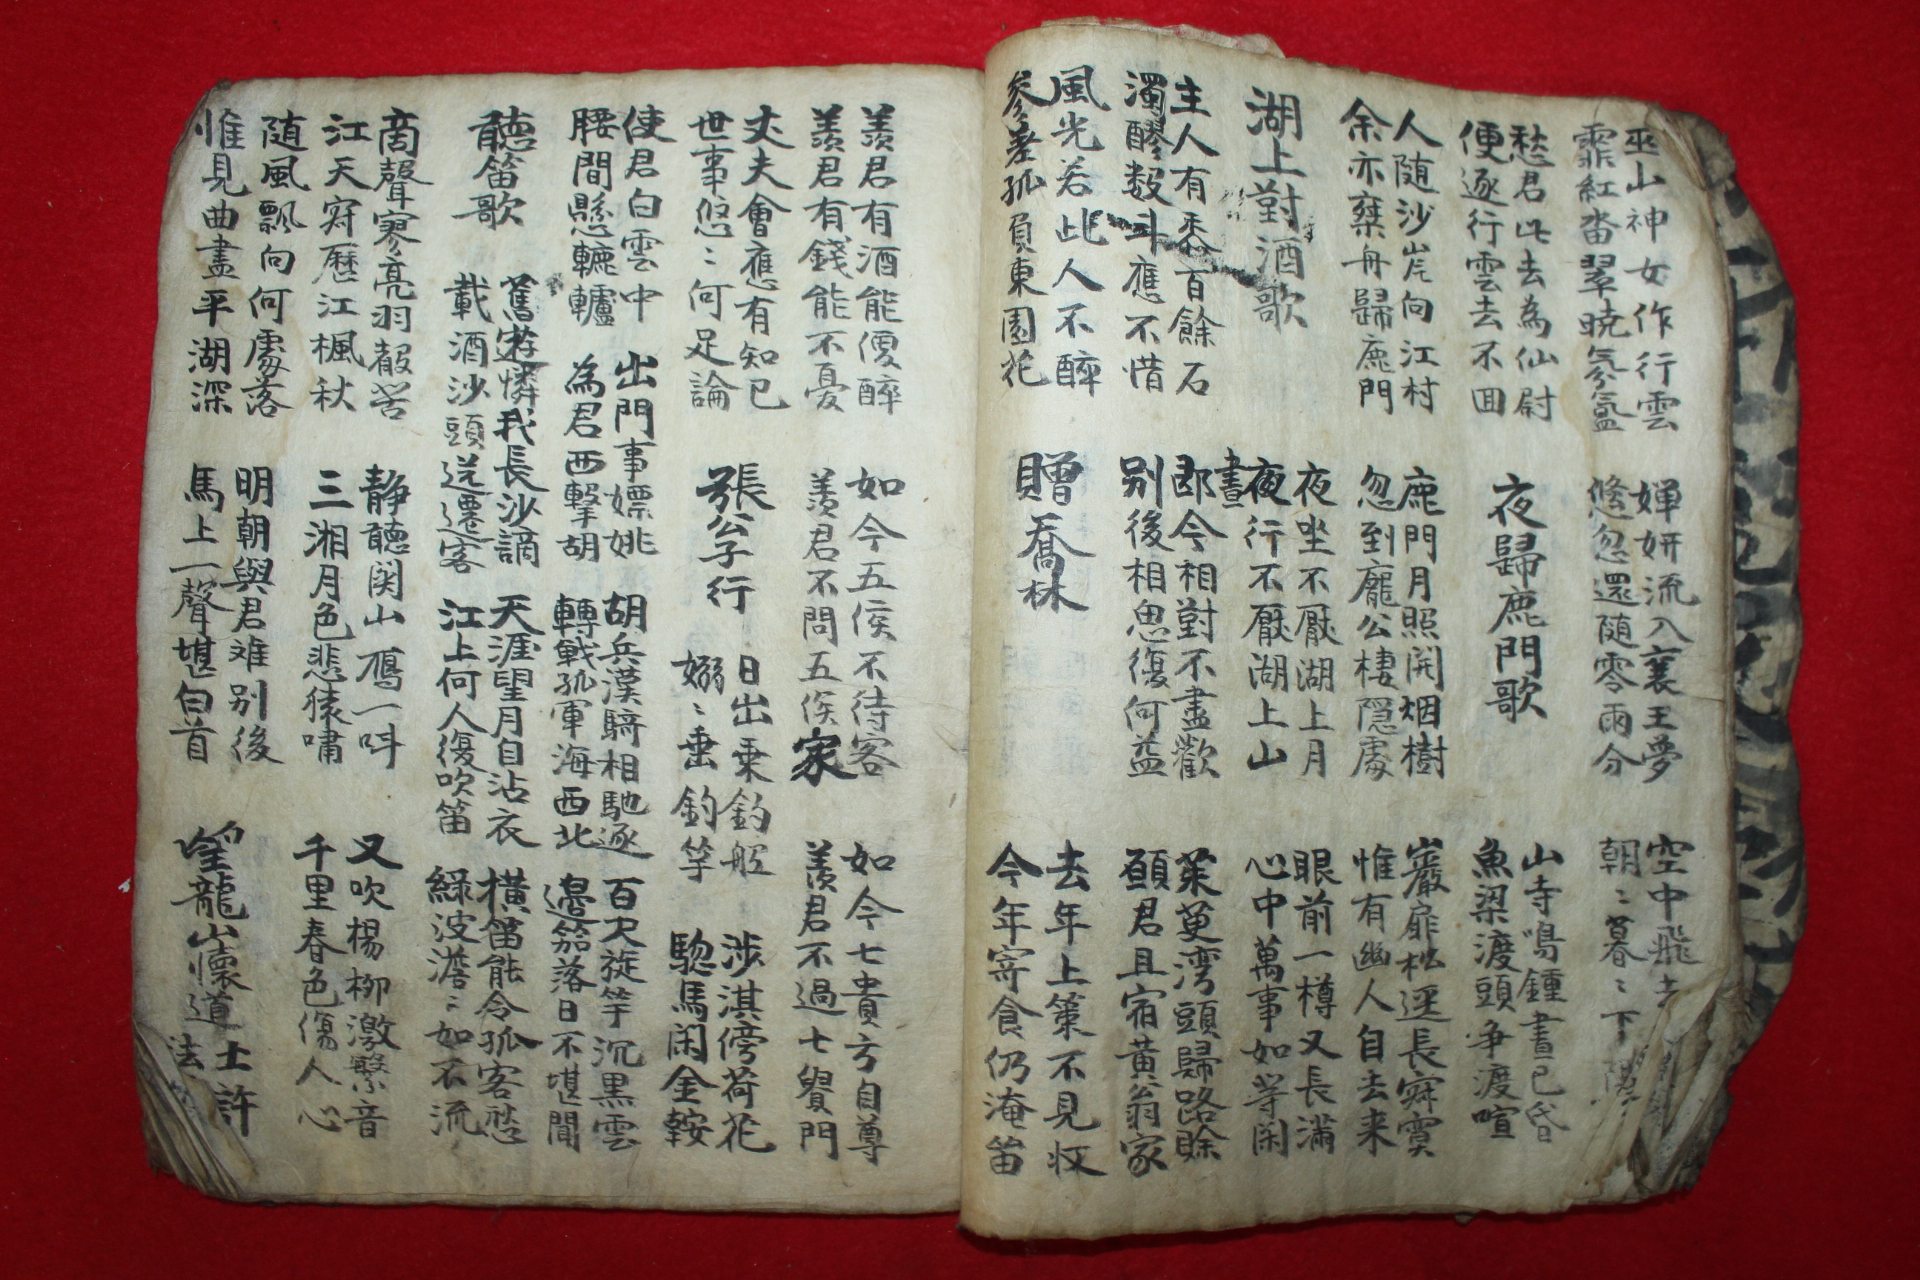 巫山神女作行雲
霏紅沓翠曉氛氳
嬋妍流入襄王夢
倏忽還随零雨分
空中飛去
朝ミ暮ミ下陽
愁君此去為仙尉
便逐行雲去不回
夜歸鹿門歌
山寺鳴鍾晝已昏
魚梁渡頭争渡喧
人随沙岸向江村
余亦乗舟歸鹿門
鹿門月照開烟樹
忽到龐公棲隠處
巖扉松逕長寂寞
惟有幽人自去来
湖上對酒歌
夜坐不厭湖上月
晝夜行不厭湖上山
眼前一樽又長滿
心中萬事如等閑
主人有黍百餘石
濁醪数斗應不惜
郎今相對不盡歡
别後相思復何益
茱萸湾頭歸路賖
願君且宿黄翁家
風光若此人不醉
參差孤負東園花
贈喬林
去年上策不見収
今年寄食仍淹留
羡君有酒能便醉
羡君有錢能不憂
如今五侯不待客
羡君不問五侯家
如今七貴方自尊
羡君不過七貴門
丈夫會應有知已
世事悠ミ何足論
張公子行
日出乗釣舩
嫋ミ垂釣竿
涉淇傍荷花
驄馬閑金鞍
使君白雲中
腰間懸轆轤
出門事嫖姚
為君西擊胡
胡兵漢騎相馳逐
轉戰孤軍海西北
百尺旌竿沉黒雲
邉笳落日不堪聞
聽笛歌
舊遊憐我長沙謫
載酒沙頭送遷客
天涯望月自沾衣
江上何人復吹笛
横笛能令孤客愁
緑波澹ミ如不流
商聲寥亮羽聲苦
江天寂歴江楓秋
静聽関山鴈一呌
三湘月色悲猿嘯
又吹楊柳激繁音
千里春色傷人心
随風飄向何處落
惟見曲盡平湖深
明朝與君难别後
馬上一聲堪白首
望龍山懷道士許
法